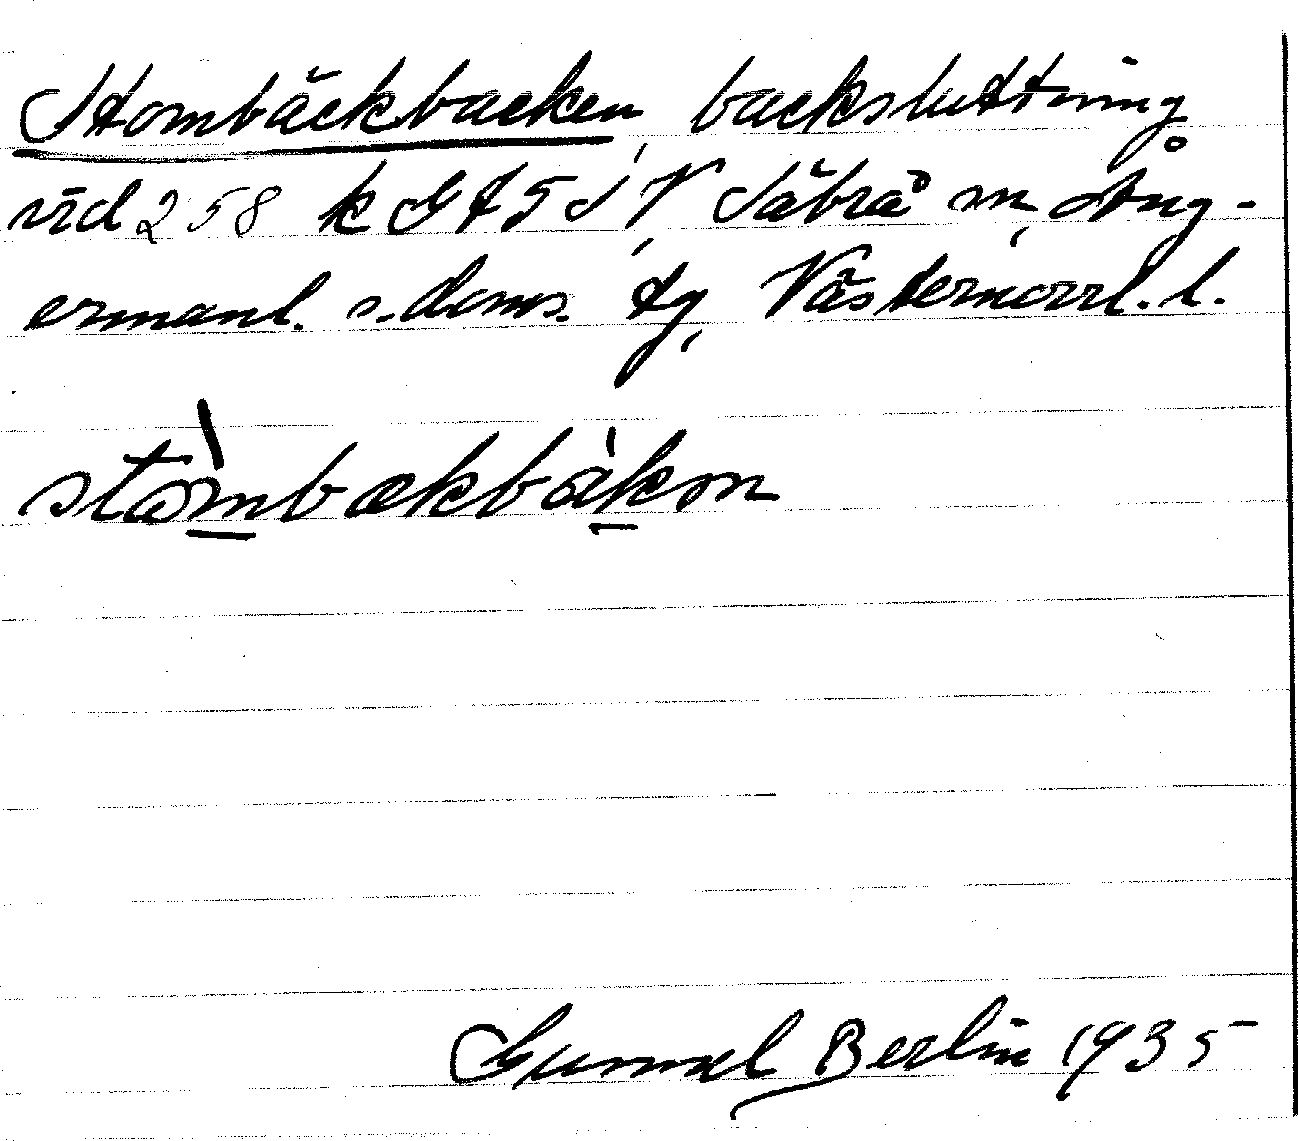 Stombäckbacken, backsluttning
vid 258 k G A 5 S V Säbrå sn, Ång-
ermanl. s. doms. tg, Västernorrl. l.
stòmbækbàkən
Gunnel Berlin 1935